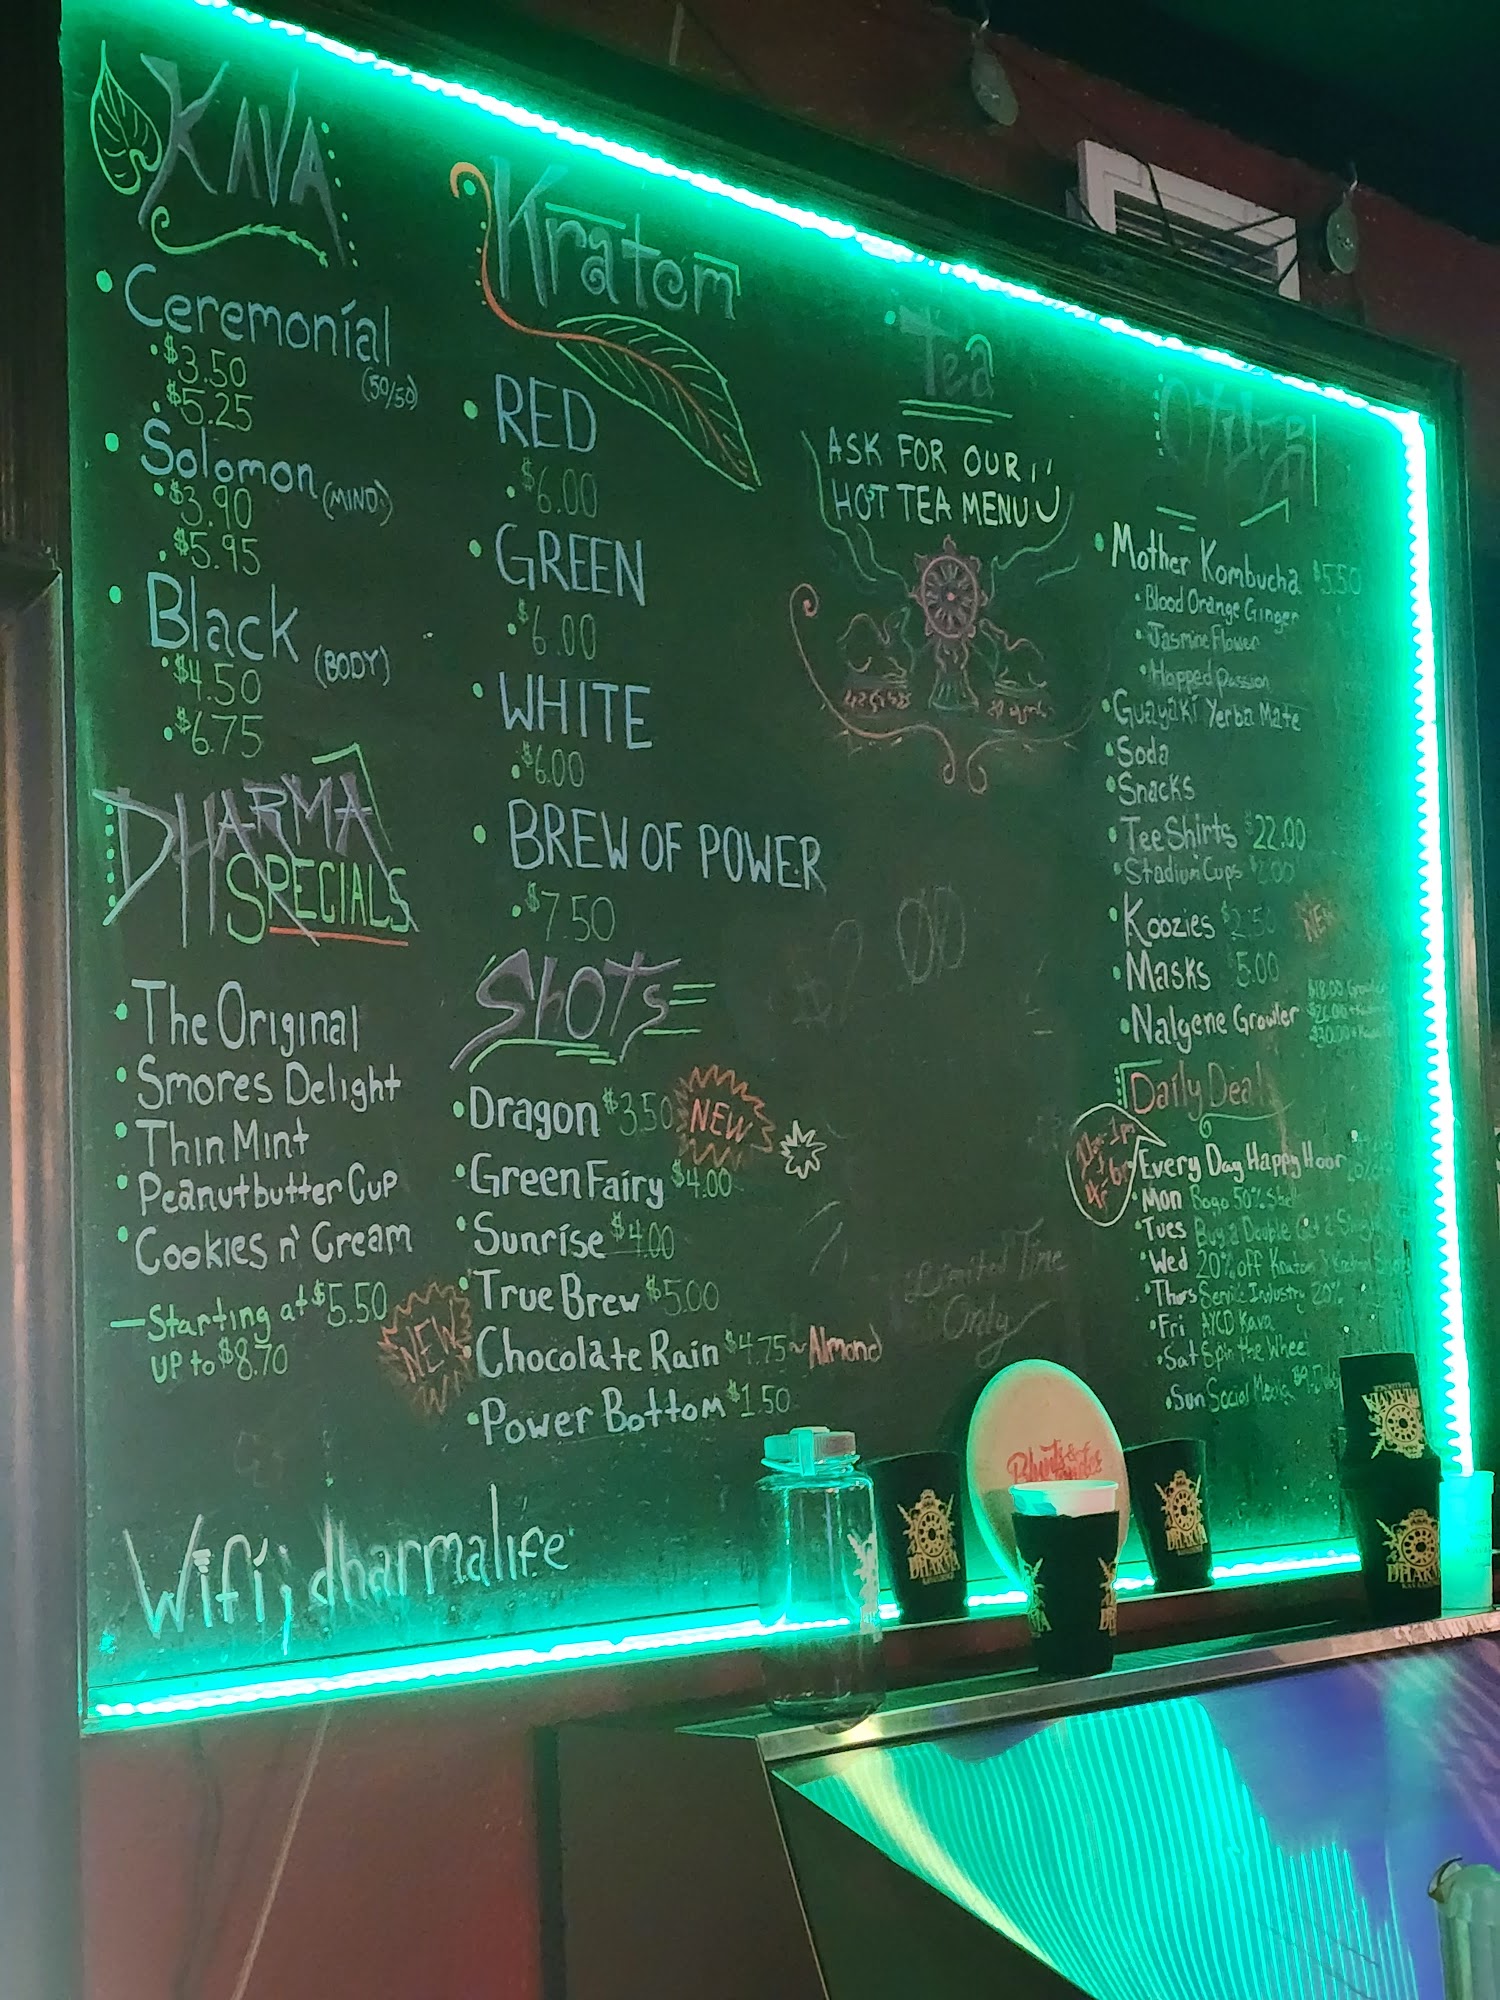 KAVA
• Ceremonial
(50/50)
• $3.50
• $5.25
• Solomon (MIND)
• $3.90
• $5.95
• Black (BODY)
• $4.50
• $6.75
DHARMA
SPECIALS
• The Original
• Smores Delight
• Thin Mint
• Peanutbutter Cup
• Cookies n' Cream
— Starting at $5.50
UP to $8.70
Wifi; dharmalife
Kratom
• RED
• $6.00
• GREEN
• $6.00
• WHITE
• $6.00
• BREW OF POWER
• $7.50
SHOTs
• Dragon $3.50 NEW
• Green Fairy $4.00
• Sunrise $4.00
• True Brew $5.00
NEW
• Chocolate Rain $4.75 ~ Almond
• Power Bottom $1.50
Tea
ASK FOR OUR
HOT TEA MENU
Limited Time
Only
OTHER
• Mother Kombucha $5.50
• Blood Orange Ginger
• Jasmine Flower
• Hopped Passion
• Guayakí Yerba Mate
• Soda
• Snacks
• Tee Shirts $22.00
• Stadium Cups $2.00
• Koozies $2.50 NEW
• Masks 5.00
• Nalgene Growler
$18.00 Growler
Daily Deal
• Every Day Happy Hoor
• Mon Bogo 50% Shell
• Tues Buy a Double Get a Single
• Wed 20% off Kratom
• Thurs Service Industry 20%
• Fri AYCD Kava
• Sat Spin the Wheel
• Sun Social Media
DHARMA
DHARMA
DHARMA
DHARMA